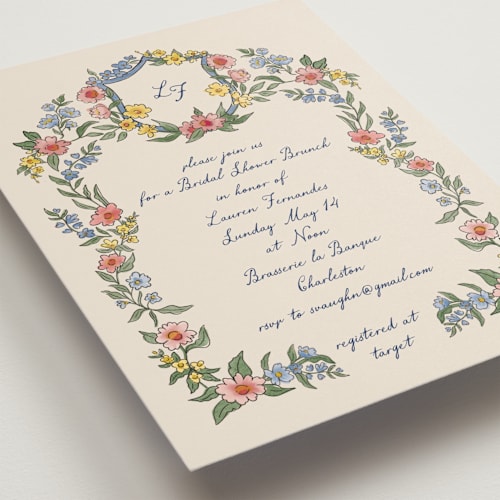 LF
please join us
for a Bridal Shower Brunch
in honor of
Lauren Fernandes
Sunday May 14
at Noon
Brasserie la Banque
Charleston
rsvp to svaughn@gmail.com
registered at
target